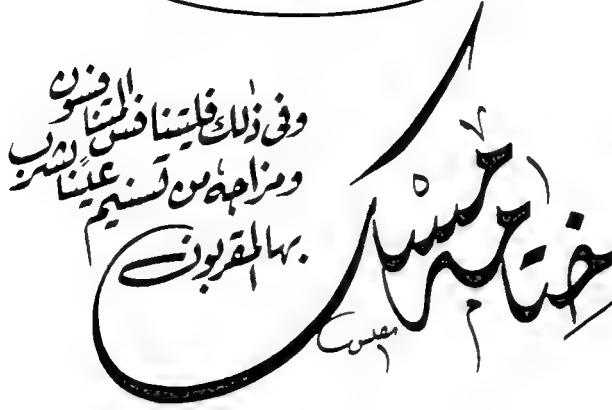 ختامه مسك
وفى ذلك فليتنافس المتنافسون
ومزاجه من تسنيم عينا يشرب
بها المقربون